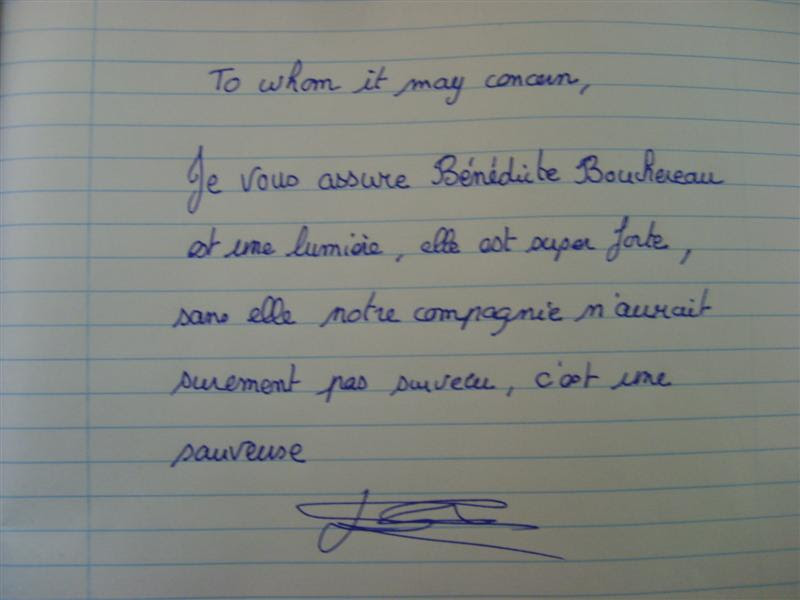 To whom it may concern,
Je vous assure Bénédicte Bouchereau
est une lumière, elle est super forte,
sans elle notre compagnie n'aurait
surement pas survecu, c'est une
sauveuse